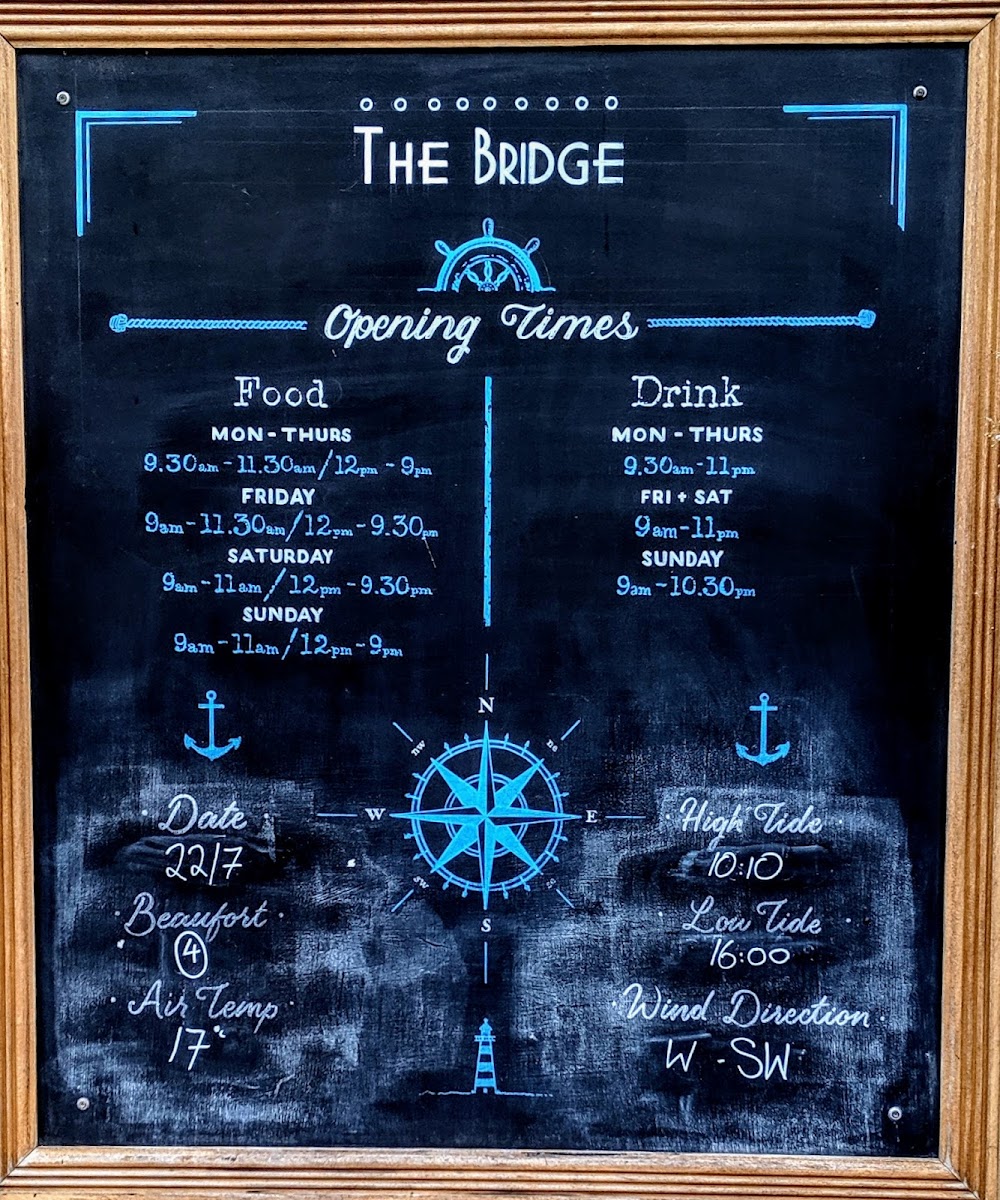 THE BRIDGE
Opening Times
Food
MON - THURS
9.30am - 11.30am / 12pm - 9pm
FRIDAY
9am - 11.30am / 12pm - 9.30pm
SATURDAY
9am - 11am / 12pm - 9.30pm
SUNDAY
9am - 11am / 12pm - 9pm
Drink
MON - THURS
9.30am - 11pm
FRI + SAT
9am - 11pm
SUNDAY
9am - 10.30pm
N
nw
ne
W
E
sw
se
S
· Date ·
22/7
· Beaufort ·
4
· Air Temp ·
17°c
· High Tide ·
10:10
· Low Tide ·
16:00
· Wind Direction ·
W - SW